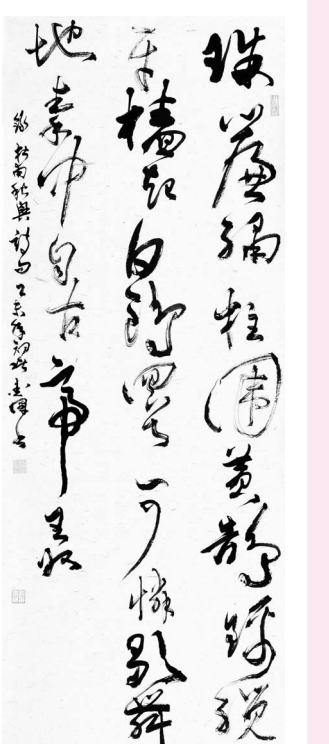 珠簾繡柱圍黃鵠錦纜
牙檣起白鷗回首可憐歌舞
地秦中自古帝王州
錄杜甫秋興詩句乙未年初秋書